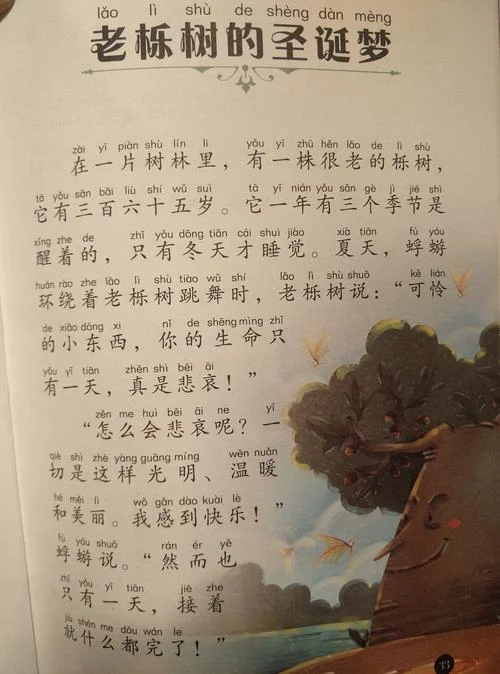 lǎo lì shù de shèng dàn mèng
老栎树的圣诞梦
zài yī piàn shù lín li yǒu yī zhū hěn lǎo de lì shù
在一片树林里，有一株很老的栎树，
tā yǒu sān bǎi liù shí wǔ suì tā yī nián yǒu sān gè jì jié shì
它有三百六十五岁。它一年有三个季节是
xǐng zhe de zhǐ yǒu dōng tiān cái shuì jiào xià tiān fú yóu
醒着的，只有冬天才睡觉。夏天，蜉蝣
huán rào zhe lǎo lì shù tiào wǔ shí lǎo lì shù shuō kě lián
环绕着老栎树跳舞时，老栎树说：“可怜
de xiǎo dōng xi nǐ de shēng mìng zhǐ
的小东西，你的生命只
yǒu yī tiān zhēn shì bēi āi
有一天，真是悲哀！”
zěn me huì bēi āi ne yī
“怎么会悲哀呢？一
qiè shì zhè yàng guāng míng wēn nuǎn
切是这样光明、温暖
hé měi lì wǒ gǎn dào kuài lè
和美丽。我感到快乐！”
fú yóu shuō rán ér yě
蜉蝣说。“然而也
zhǐ yǒu yī tiān jiē zhe
只有一天，接着
jiù shén me dōu wán le
就什么都完了！”
33